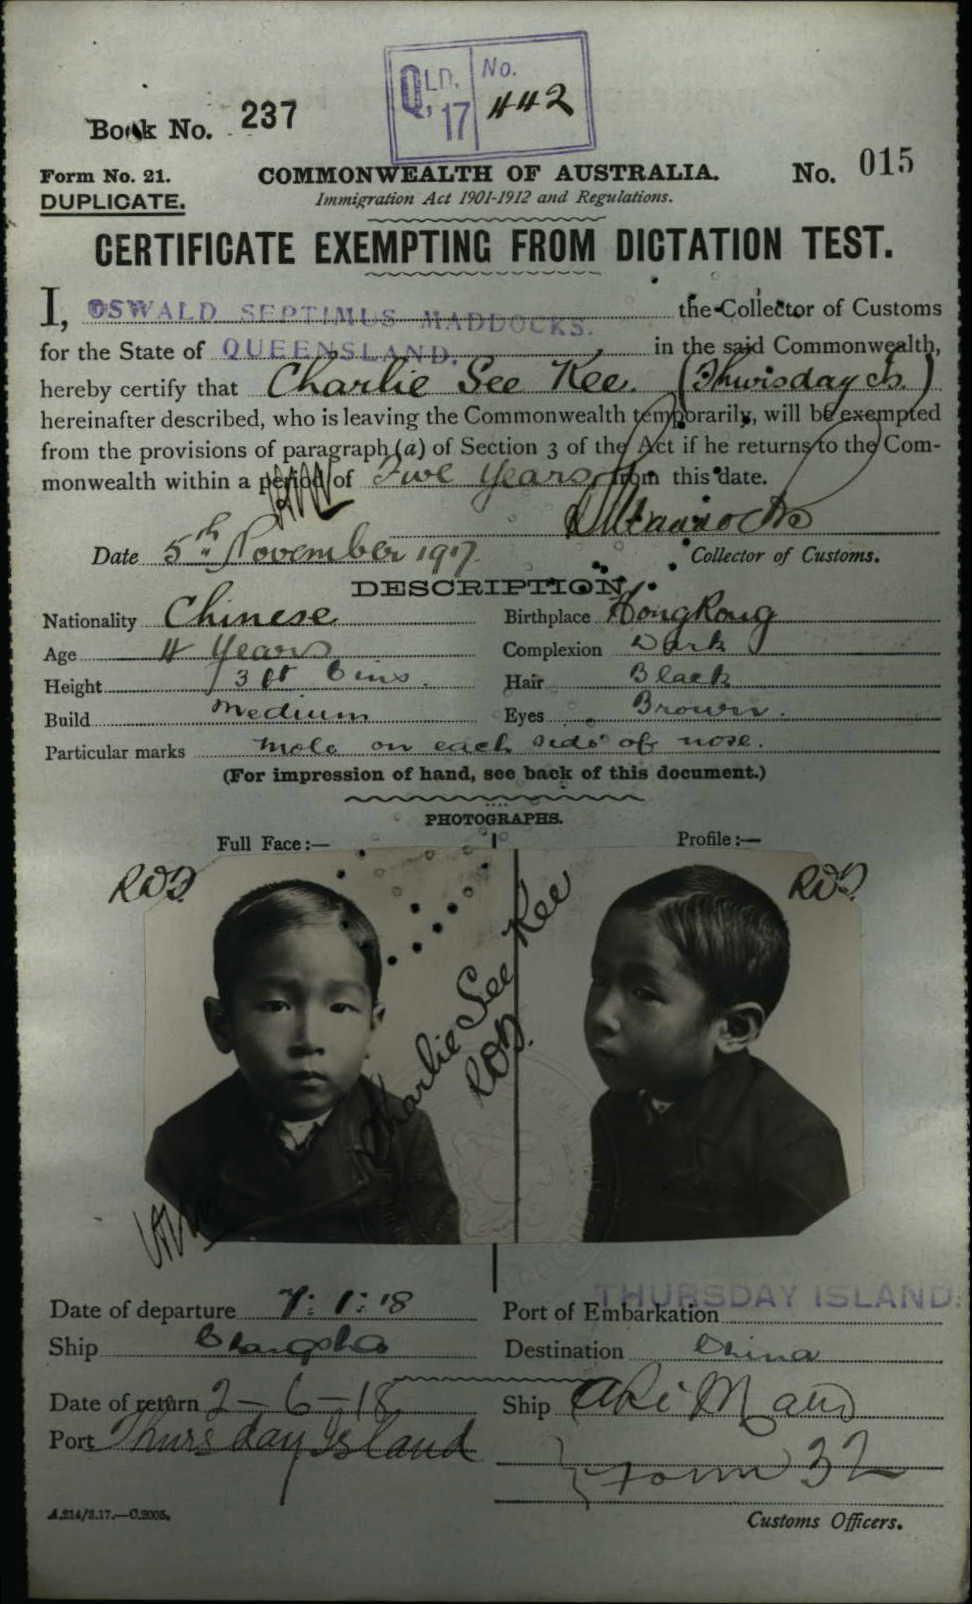 QLD. 17 No. 442
Book No. 237
Form No. 21. COMMONWEALTH OF AUSTRALIA. No. 015
DUPLICATE. Immigration Act 1901-1912 and Regulations.
CERTIFICATE EXEMPTING FROM DICTATION TEST.
I, OSWALD SEPTIMUS MADDOCKS. the Collector of Customs
for the State of QUEENSLAND. in the said Commonwealth,
hereby certify that Charlie See Kee. (Thursday Is.)
hereinafter described, who is leaving the Commonwealth temporarily, will be exempted
from the provisions of paragraph (a) of Section 3 of the Act if he returns to the Com-
monwealth within a period of Five Years from this date.
Date 5th November 1917. Collector of Customs.
DESCRIPTION.
Nationality Chinese Birthplace Hong Kong
Age 4 Years Complexion Dark
Height 3 ft 6 ins. Hair Black
Build Medium Eyes Brown.
Particular marks Mole on each side of nose.
(For impression of hand, see back of this document.)
PHOTOGRAPHS.
Full Face:— Profile:—
Charlie See Kee
Date of departure 7:1:18 Port of Embarkation THURSDAY ISLAND.
Ship Changsha Destination China
Date of return 2-6-18 Ship Aki Maru
Port Thursday Island
Form 32
A.214/3.17.—C.2005. Customs Officers.